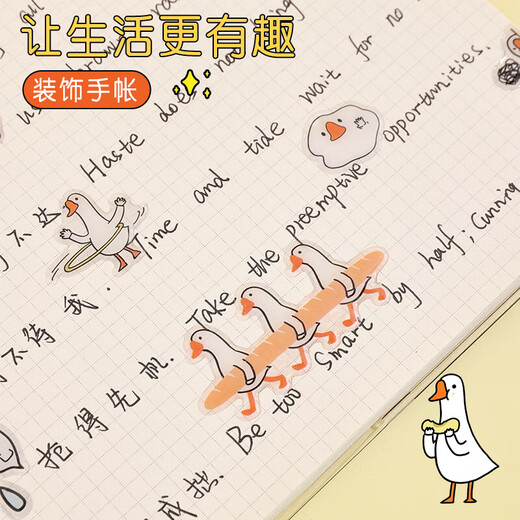 让生活更有趣
装饰手帐
不达 Haste does
不待我. Time and tide wait for no
抢得先机. Take the preemptive opportunities.
成拙. Be too smart by half; Cunning